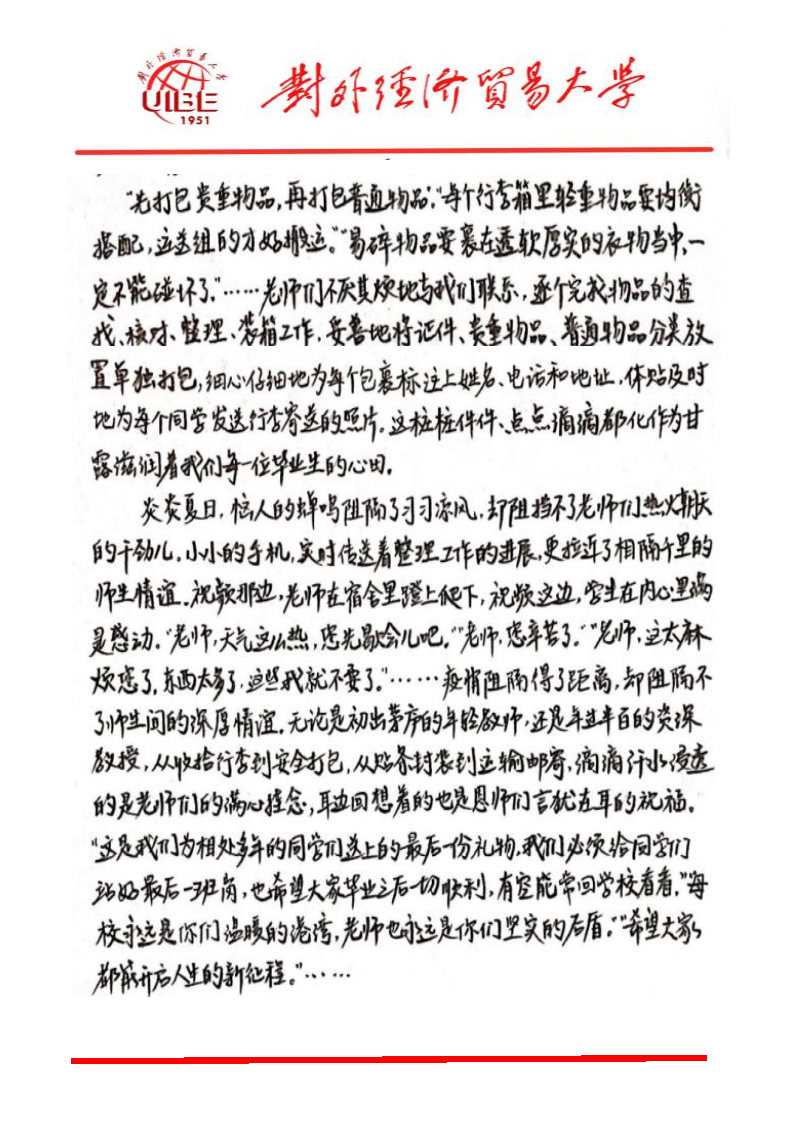 對外經濟貿易大學
UIBE
1951
對外經濟貿易大學
“先打包贵重物品,再打包普通物品。”“每个行李箱里轻重物品要均衡
搭配,这送组的才好搬运。”“易碎物品要裹在透软厚实的衣物当中,一
定不能碰坏了。”……老师们不厌其烦地与我们联系,逐个完成物品的查
找、核对、整理、装箱工作,妥善地将证件、贵重物品、普通物品分类放
置单独打包,细心仔细地为每个包裹标注上姓名、电话和地址,体贴及时
地为每个同学发送行李寄送的照片。这桩桩件件、点点滴滴都化作为甘
露滋润着我们每一位毕业生的心田。
炎炎夏日,恼人的蝉鸣阻隔了习习凉风,却阻挡不了老师们热火朝天
的干劲儿,小小的手机,实时传送着整理工作的进展,更拉近了相隔千里的
师生情谊。视频那边,老师在宿舍里蹬上爬下,视频这边,学生在内心里满
是感动。“老师,天气这么热,您先歇会儿吧。”“老师,您辛苦了。”“老师,这太麻
烦您了,东西太多了,这些我就不要了。”……疫情阻隔得了距离,却阻隔不
了师生间的深厚情谊。无论是初出茅庐的年轻教师,还是年过半百的资深
教授,从收拾行李到安全打包,从贴条封装到运输邮寄,滴滴汗水浸透
的是老师们的满心挂念,耳边回想着的也是恩师们言犹在耳的祝福。
“这是我们为相处多年的同学们送上的最后一份礼物,我们必须给同学们
站好最后一班岗,也希望大家毕业之后一切顺利,有空能常回学校看看。”“母
校永远是你们温暖的港湾,老师也永远是你们坚实的后盾。”“希望大家
都能开启人生的新征程。”……